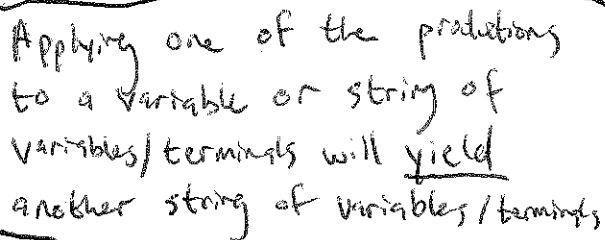 Applying one of the produtions
to a variable or string of
variables/terminals will yield
another string of variables/terminals